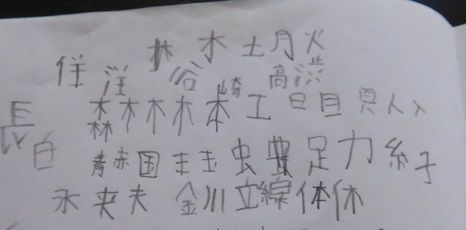 林 水 土 月 火
住 洋 谷 崎 高 渋
森 木 木 木 本 工 日 目 貝 人 入
長
白 青 赤 国 王 玉 虫 足 力 糸 子
水 夫 金 川 立 線 体 休